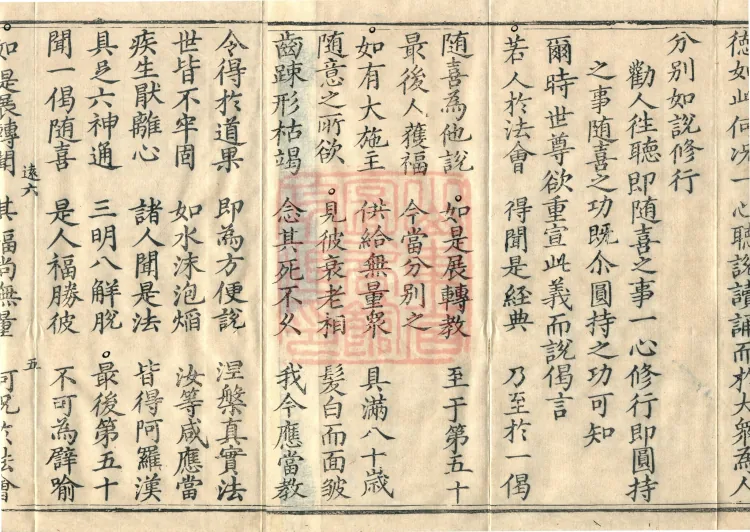 德如此何況一心聽說讀誦而於大衆為人
分別如說修行
勸人往聽即随喜之事一心修行即圓持
之事随喜之功既尒圓持之功可知
爾時世尊欲重宣此義而說偈言
若人於法會 得聞是經典 乃至於一偈
随喜為他說 如是展轉教 至于第五十
最後人獲福 今當分別之
如有大施主 供給無量衆 具滿八十歲
随意之所欲 見彼衰老相 髮白而面皺
齒踈形枯竭 念其死不久 我今應當教
令得於道果 即為方便說 涅槃真實法
世皆不牢固 如水沫泡熖 汝等咸應當
疾生猒離心 諸人聞是法 皆得阿羅漢
具足六神通 三明八解脫 最後第五十
聞一偈随喜 是人福勝彼 不可為譬喻
遠六 五
如是展轉聞 其福尚無量 何況於法會